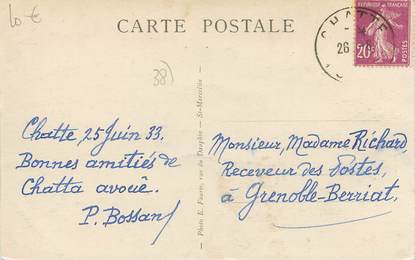 10 €
CARTE POSTALE
38)
CHATTE
26
REPUBLIQUE FRANÇAISE
20c
POSTES
Chatte, 25 Juin 33.
Bonnes amitiés de
Chatta avouê.
P. Bossan
Photo E. Faurin, rue du Dauphin — St-Marcellin
Monsieur, Madame Richard,
Receveur des Postes,
à Grenoble-Berriat.